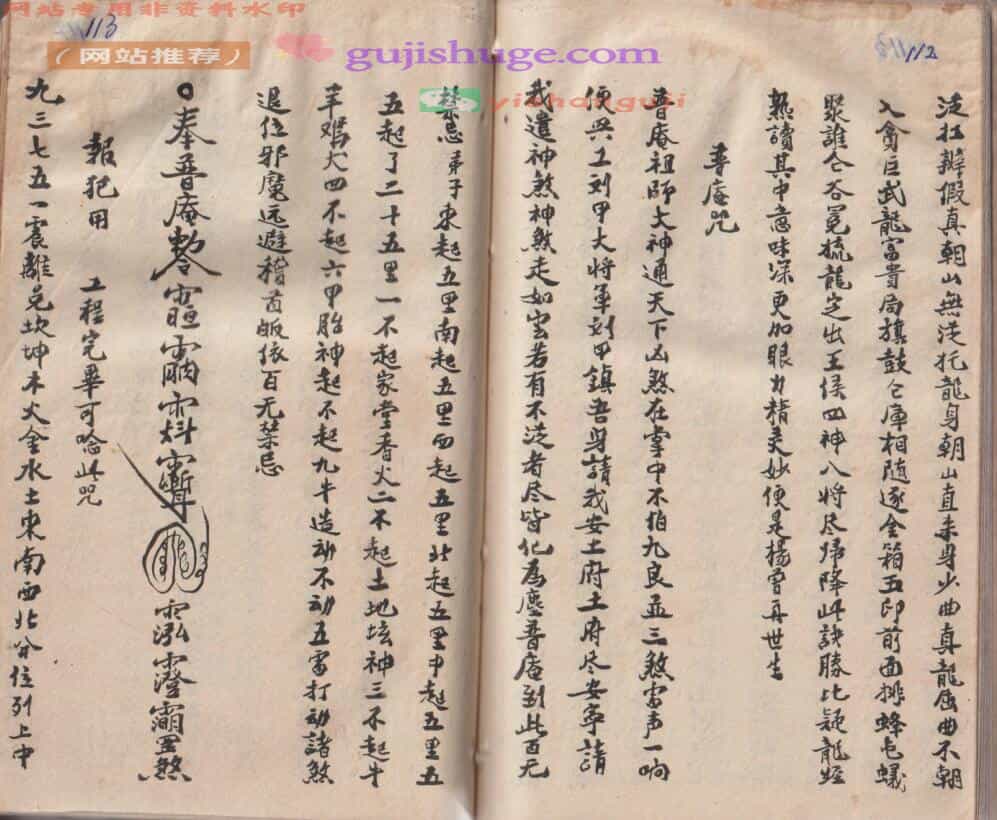 网站专用非资料水印
113
（网站推荐）
gujishuge.com
yishanguji
112
泛扛辨假真朝山無泛托龍身朝山直来身少曲真龍屈曲不朝
入貪巨武龍富貴局旗鼓仓庫相隨逐金箱玉印前面排蜂屯蟻
聚誰仝谷冕梳龍定出王侯四神八將尽归降此訣勝比疑龍經
熟讀其中意味深更加眼力精美妙便是楊曾再世生
普庵咒
普庵祖師大神通天下凶煞在掌中不怕九良並三煞雷声一响
便興工刘甲大将軍刘甲鎮吾身請我安土府土府尽安寧請
我遣神煞神煞走如雲若有不泛者尽皆化為塵普庵到此百无
禁忌弟子東起五里南起五里西起五里北起五里中起五里五
五起了二十五里一不起家堂香火二不起土地坛神三不起牛
羊鸡犬四不起六甲胎神起不起九牛造动不动五雷打动諸煞
退位邪魔远避稽首皈依百无禁忌
奉普庵敕 煞
報犯用 工程完畢可唸此咒
九三七五一震離兑坎坤木火金水土東南西北分位列上中